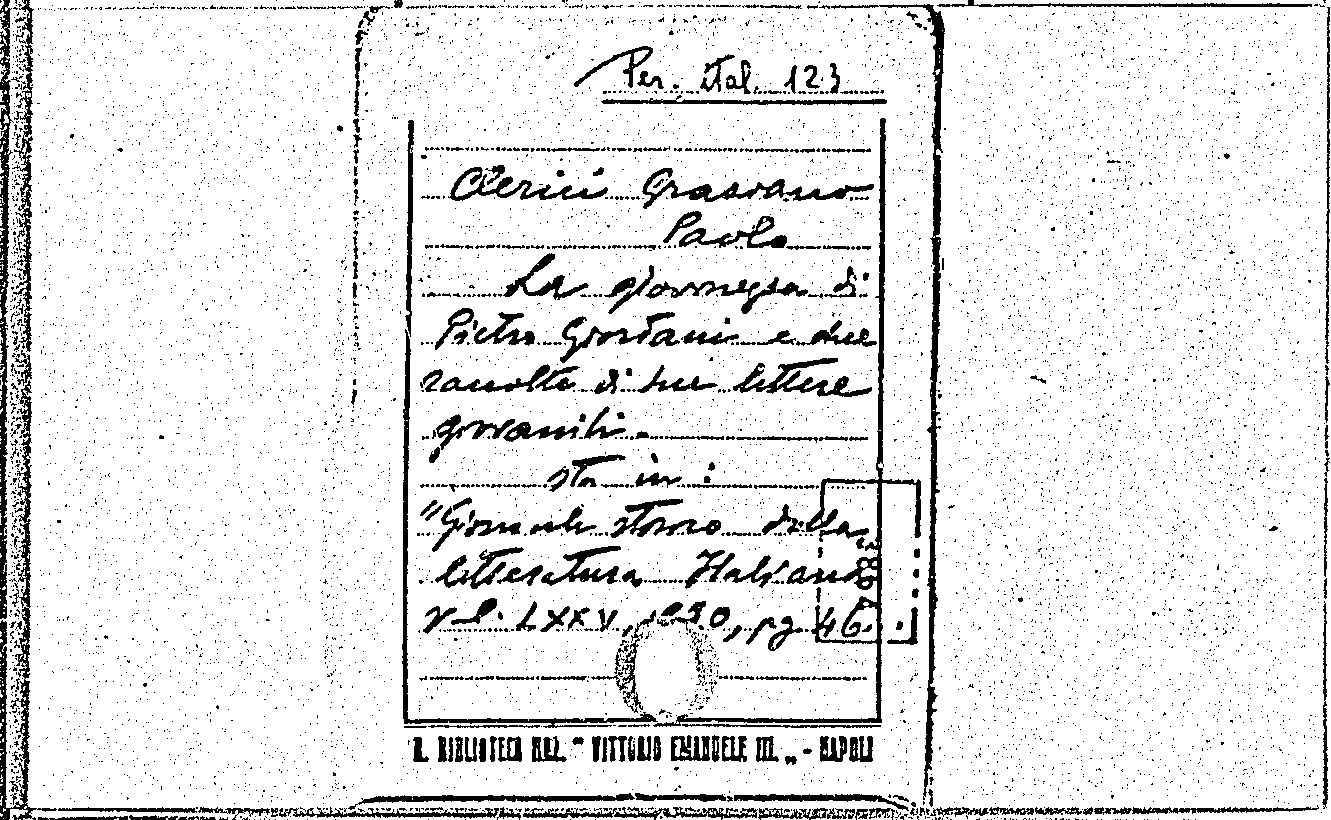 Per. ital. 123
Clerici Grasiano
Paolo
La giovinezza di
Pietro Giordani e due
raccolte di sue lettere
giovanili.
sta in:
"Giornale storico della
letteratura Italiana
vol. LXXV, pg 46.
R. BIBLIOTECA NAZ. "VITTORIO EMANUELE III„ - NAPOLI